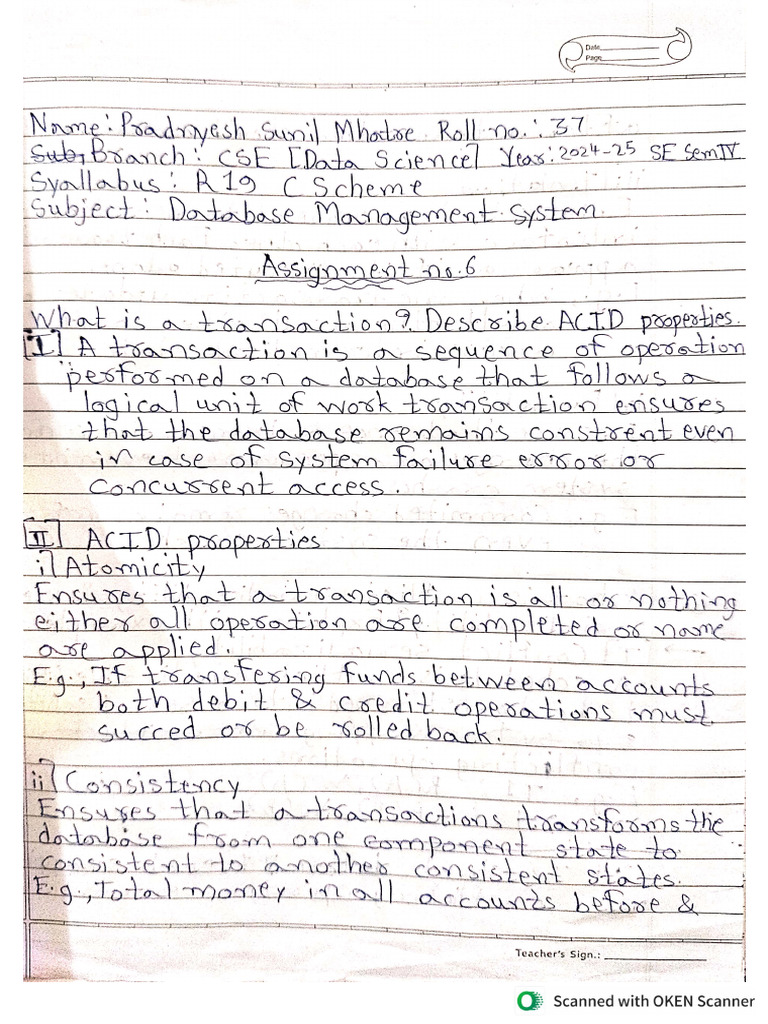 Date
Page
Name: Pradnyesh Sunil Mhatre Roll no.: 37
Sub, Branch: CSE [Data Science] Year: 2024-25 SE Sem IV
Syallabus: R19 C Scheme
Subject: Database Management System
Assignment no. 6
What is a transaction? Describe ACID properties.
I] A transaction is a sequence of operation
performed on a database that follows a
logical unit of work transaction ensures
that the database remains constrent even
in case of system failure error or
concurrent access.
II] ACID properties
i] Atomicity
Ensures that a transaction is all or nothing
either all operation are completed or name
are applied.
E.g., If transfering funds between accounts
both debit & credit operations must
succed or be rolled back.
ii] Consistency
Ensures that a transactions transforms the
database from one component state to
consistent to another consistent states.
E.g., Total money in all accounts before &
Teacher's Sign.:
Scanned with OKEN Scanner